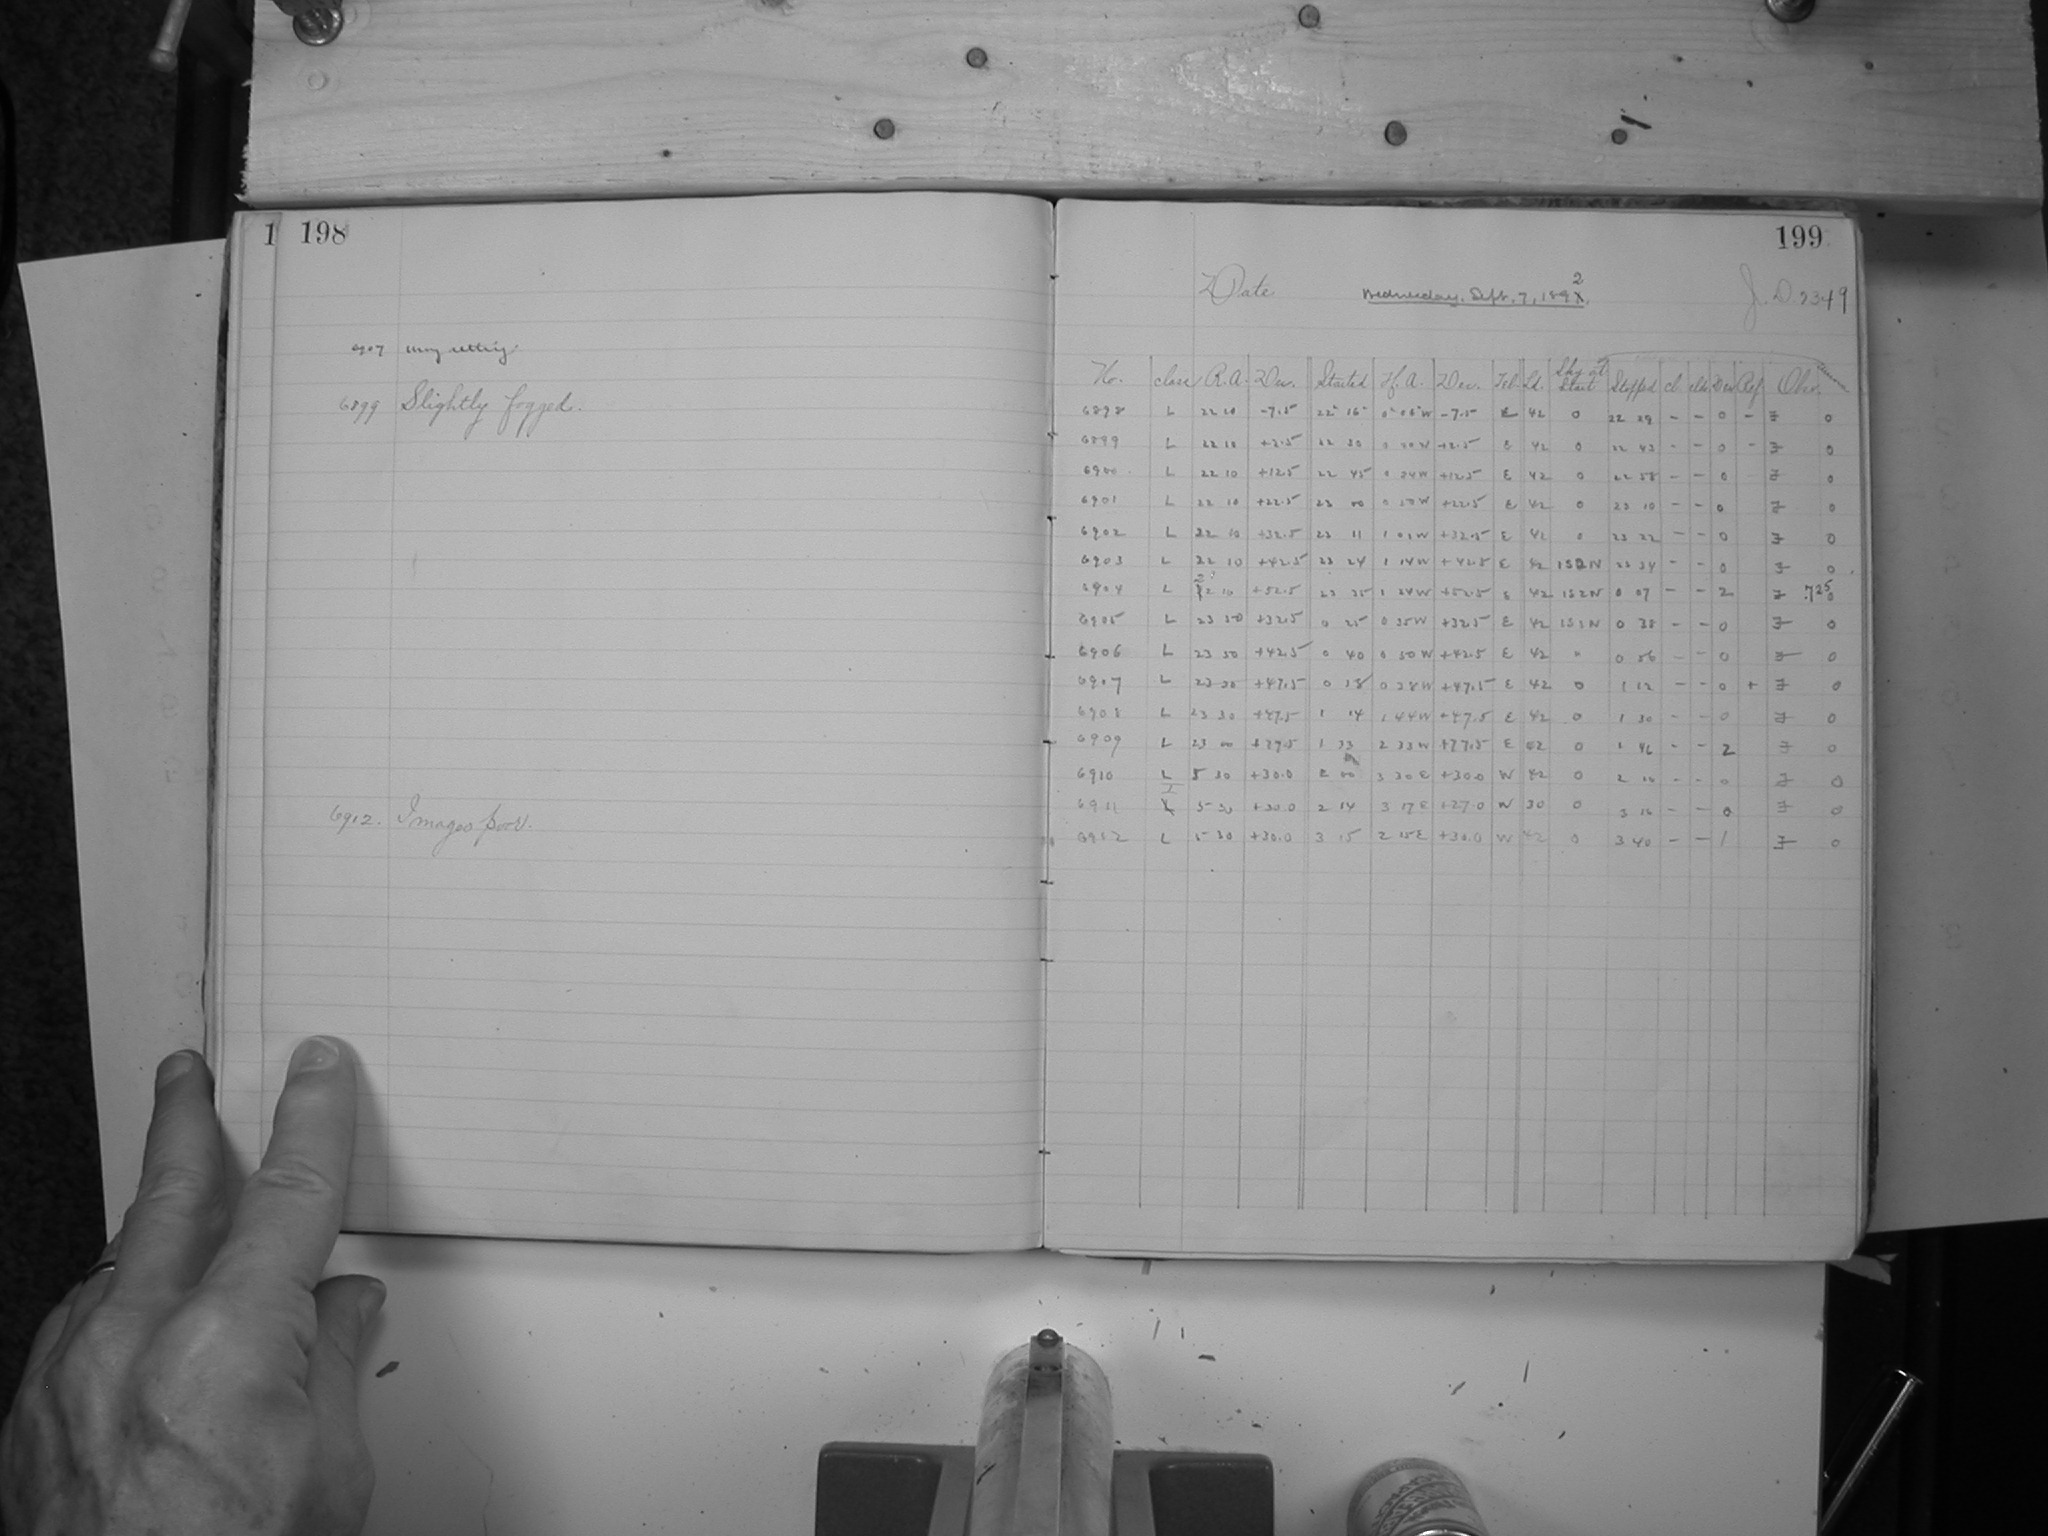 1 198
6907 wrong setting
6899 Slightly fogged.
6912. Images poor.
199
Date Wednesday, Sept. 7, 1892. J. D. 2349
No. Class R.A. Dec. Started H. A. Dec. Tel. Ld. Sky at Start Stopped cl. Dev Ref Obs.
6898 L 22 10 -7.5 22 16 0 06 W -7.5 E 42 0 22 29 - - 0 - F 0
6899 L 22 10 +2.5 22 30 0 20 W +2.5 E 42 0 22 43 - - 0 - F 0
6900 L 22 10 +12.5 22 45 0 34 W +12.5 E 42 0 22 58 - - 0 F 0
6901 L 22 10 +22.5 23 00 0 50 W +22.5 E 42 0 23 10 - - 0 F 0
6902 L 22 10 +32.5 23 11 1 01 W +32.5 E 42 0 23 22 - - 0 F 0
6903 L 22 10 +42.5 23 24 1 14 W +42.5 E 42 1S2N 23 34 - - 0 F 0
6904 L 22 10 +52.5 23 35 1 24 W +52.5 E 42 1S2N 0 07 - - 2 F 725 0
6905 L 23 50 +32.5 0 25 0 35 W +32.5 E 42 1S1N 0 38 - - 0 F 0
6906 L 23 50 +42.5 0 40 0 50 W +42.5 E 42 " 0 56 - - 0 F 0
6907 L 23 30 +47.5 0 58 0 28 W +47.5 E 42 0 1 12 - - 0 + F 0
6908 L 23 30 +47.5 1 14 1 44 W +47.5 E 42 0 1 30 - - 0 F 0
6909 L 23 00 +77.5 1 33 2 33 W +77.5 E 42 0 1 46 - - 2 F 0
6910 L 5 30 +30.0 2 00 3 30 E +30.0 W 42 0 2 10 - - 0 F 0
6911 I 5 30 +30.0 2 14 3 17 E +27.0 W 30 0 3 16 - - 0 F 0
6912 L 5 30 +30.0 3 15 2 15 E +30.0 W 42 0 3 40 - - 1 F 0